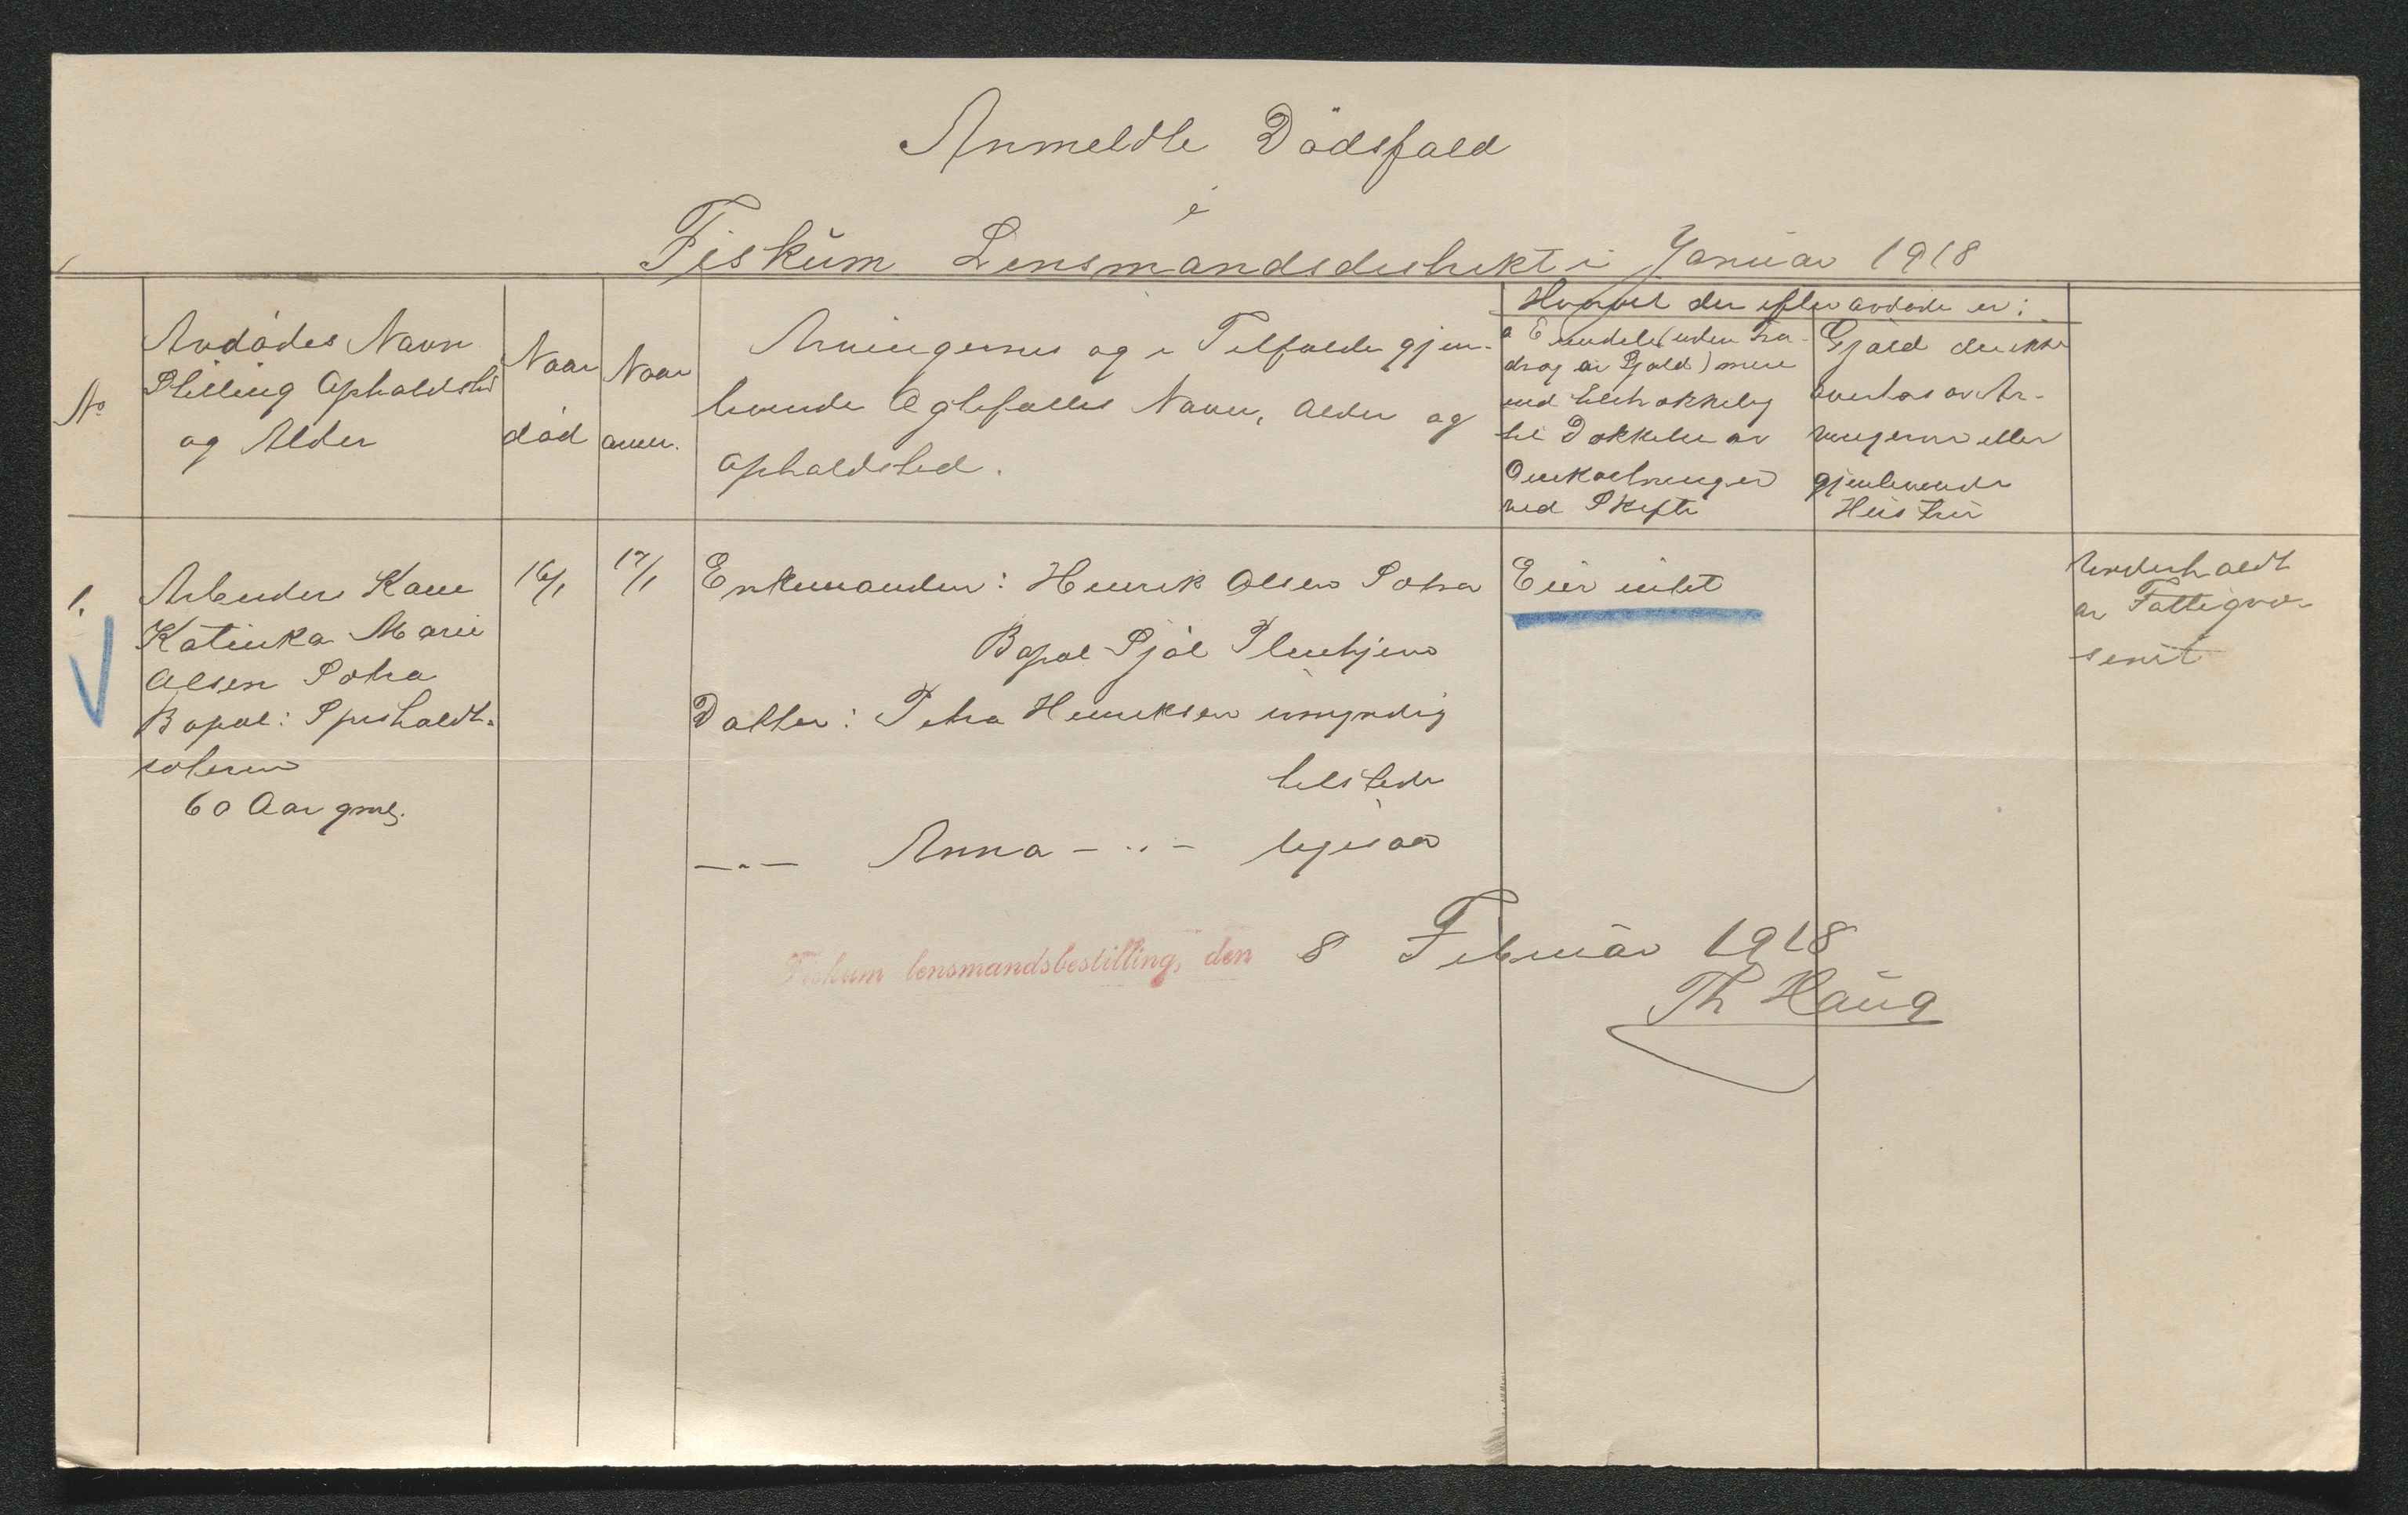 Anmeldte Dödsfald
i
Fiskum Lensmandsdistrikt i Januar 1918
No
Avdödes Navn
Stilling Opholdsted
og Alder
Naar
död
Naar
anm.
Arvingernes og i Tilfælde gjen-
levende Ægtefælles Navn, Alder og
Opholdsted.
Hvorvet der efter avdöde er:
a Eiendele (uden fra-
drag av Gjæld) mere
end tilstrækkelig
til Dækkelse av
Omkostninger
ved Skifte
Gjæld der ikke
overtas av Ar-
vingerne eller
gjenlevende
Hustru
1.
Arbeider Kone
Katinka Marie
Olsen Sotra
Bopæl:
60 Aar gml.
16/1
17/1
Enkemanden: Henrik Olsen Sotra
Bopæl
Datter: Petra Henriksen umyndig
tilstede
—"— Anna —"— ligesaa
Eier intet
Underholdt
av Fattigvæ-
senet
Fiskum lensmandsbestilling, den 8 Februar 1918
Th Haug